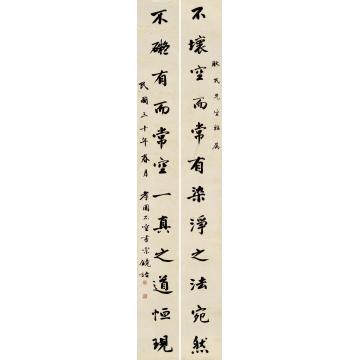 耿民先生雅属
不壞空而常有染淨之法宛然
不礙有而常空一真之道恒現
民國三十年春月 不空書宗鏡語